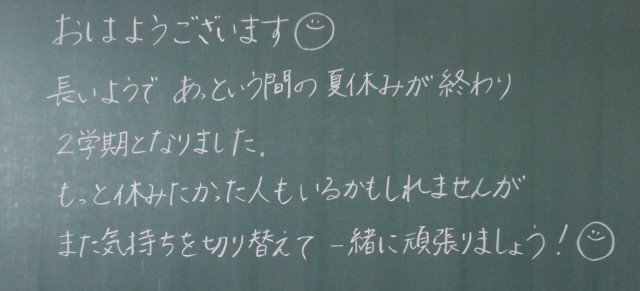 おはようございます☺
長いようで あっという間の 夏休みが 終わり
2学期となりました。
もっと休みたかった人もいるかもしれませんが
また気持ちを切り替えて 一緒に頑張りましょう！☺